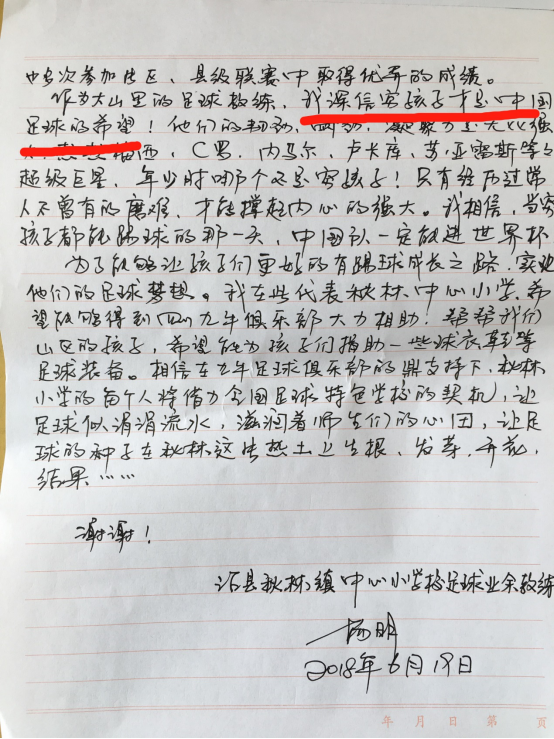 中多次参加片区、县级联赛中取得优异的成绩。
作为大山里的足球教练，我深信穷孩子才是中国
足球的希望！他们的韧劲、凝聚力是无比强
西，C罗，内马尔，卢卡库，苏亚雷斯等等
超级巨星，年少时哪个不是穷孩子！只有经历过常
人不曾有的磨难，才能撑起内心的强大。我相信，当穷
孩子都能踢球的那一天，中国队一定能进世界杯
为了能够让孩子们更好的有踢球成长之路，实现
他们的足球梦想。我在此代表秋林中心小学，希
望能够得到四川九牛俱乐部大力相助！帮帮我们
山区的孩子，希望能为孩子们捐助一些球衣球鞋等
足球装备。相信在九牛足球俱乐部的鼎力支持下，秋林
小学的每个人将借力全国足球特色学校的契机，让
足球似涓涓流水，滋润着师生们的心田，让足
球的种子在秋林这片热土上生根，发芽，开花，
结果……
谢谢！
县秋林镇中心小学校足球业余教练
杨明
2018年6月19日
年 月 日 第 页